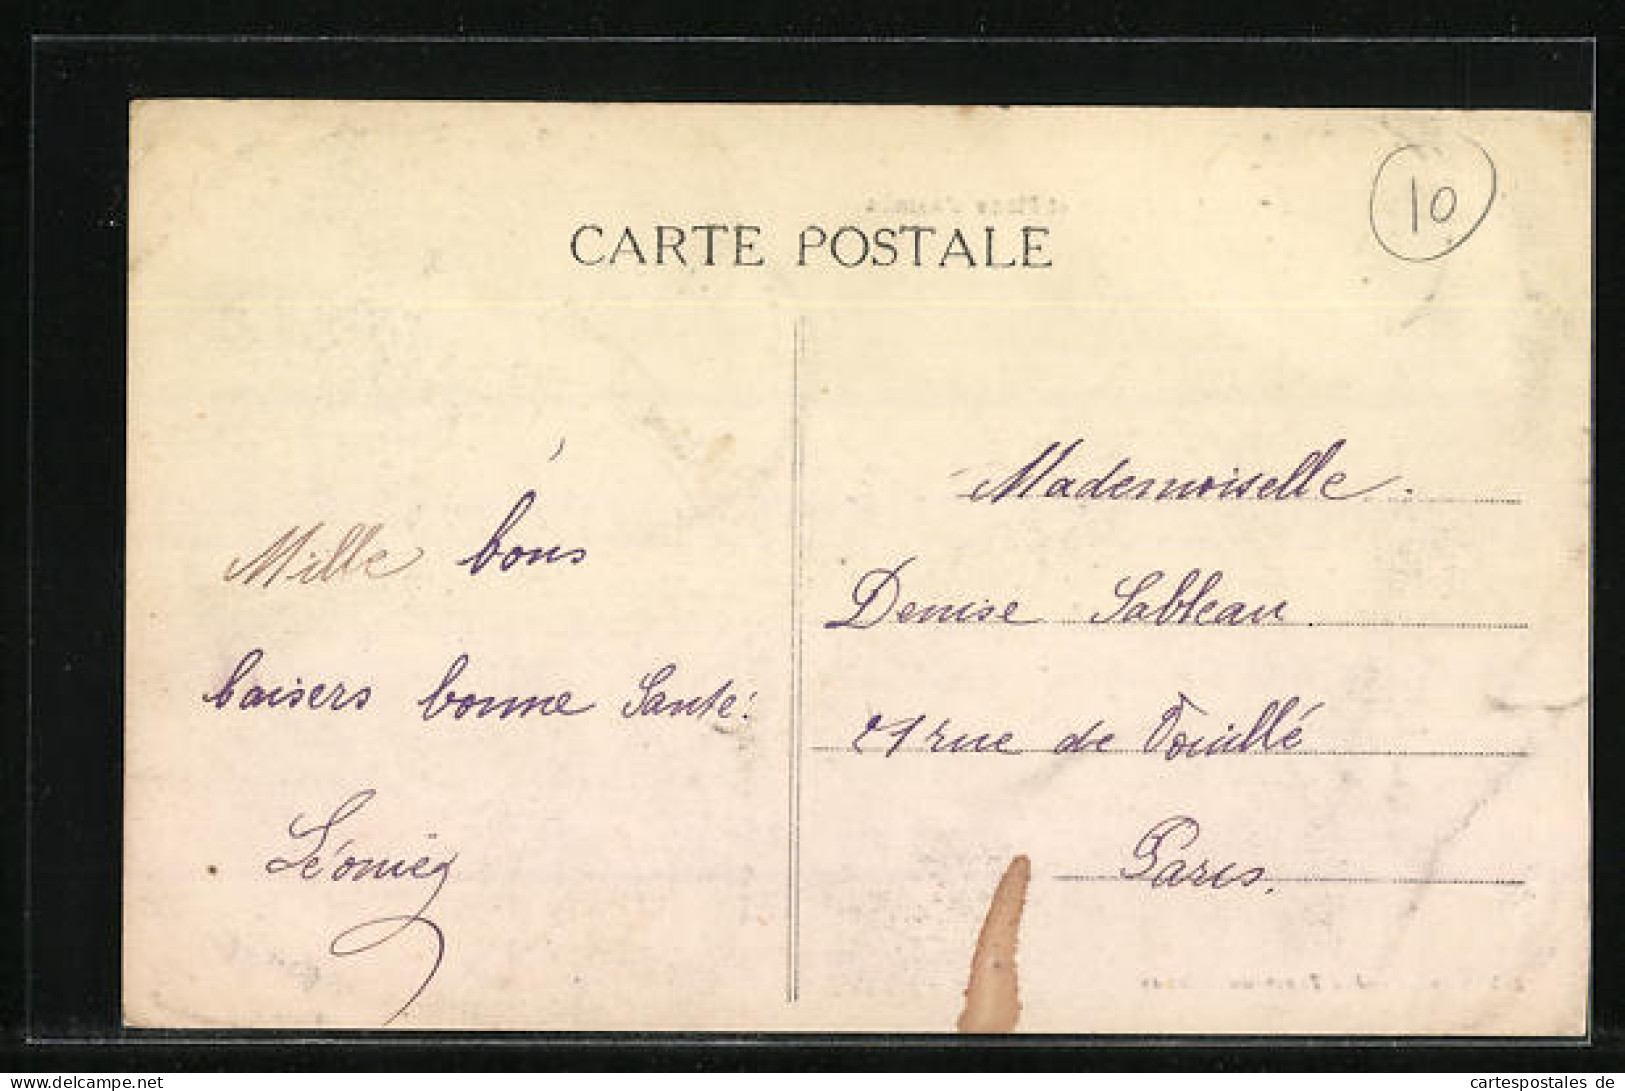 10
CARTE POSTALE
Mille bons
baisers bonne Santé.
Mademoiselle.
Denise Sableau
21 rue de Vouillé
Paris.
cartespostales de